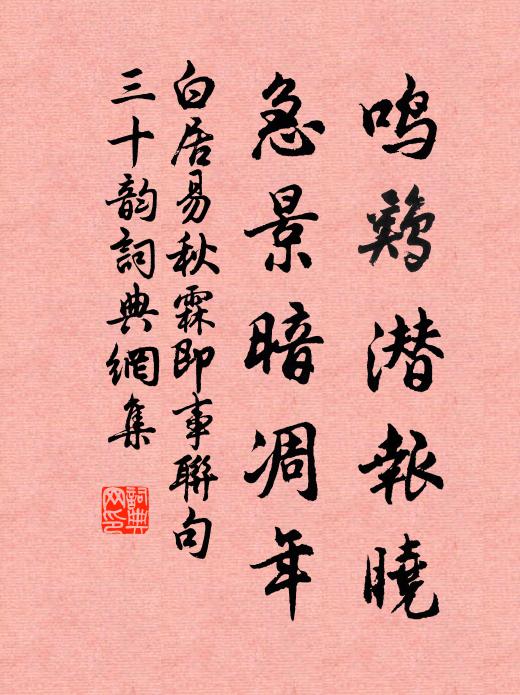 鸣鸡潜报晓
急景暗凋年
白居易秋霖即事聯句
三十韵詞典網集
詞典
网印